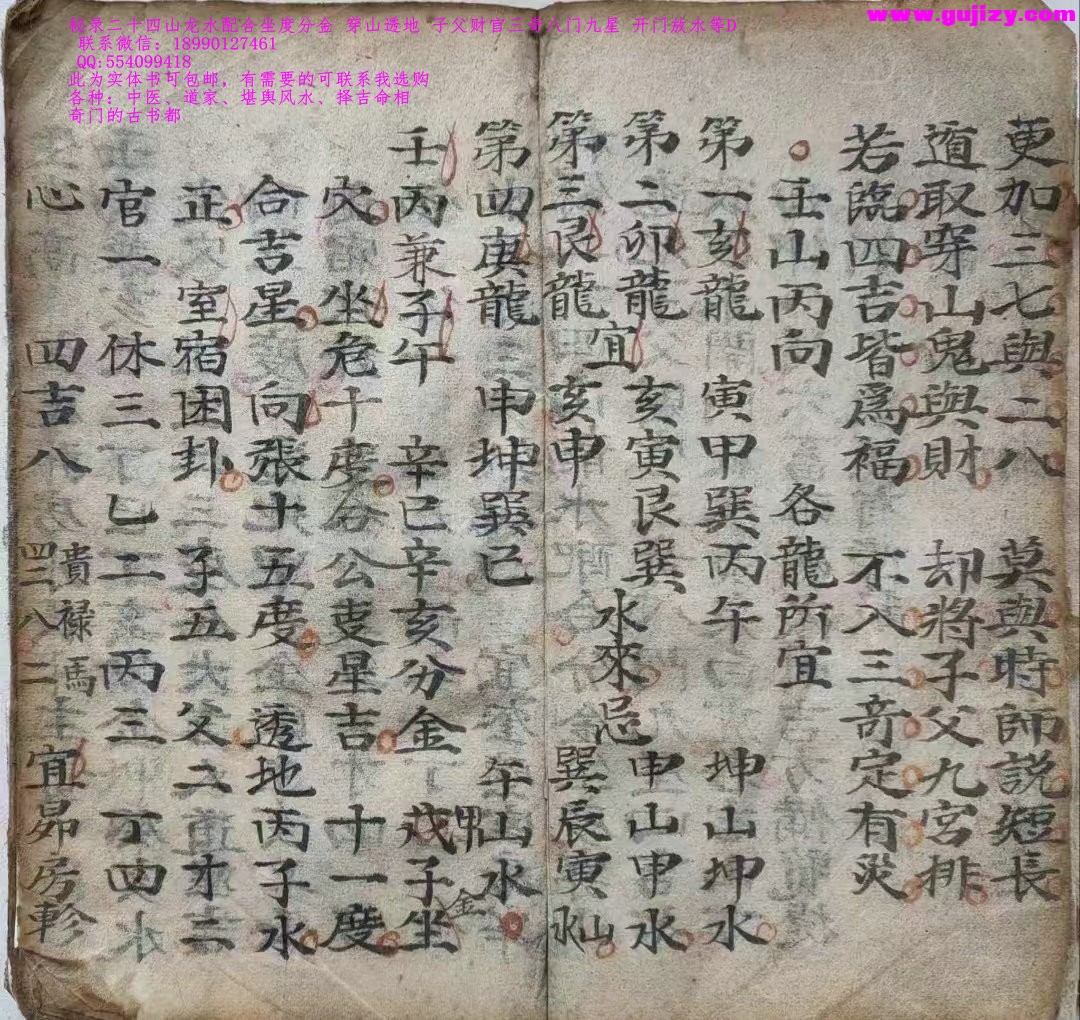 www.gujizy.com
秘录二十四山龙水配合坐度分金 穿山透地 子父财官三奇八门九星 开门放水等D
联系微信：18990127461
QQ:554099418
此为实体书可包邮，有需要的可联系我选购
各种：中医、道家、堪舆风水、择吉命相
奇门的古书都
更加三七與二八 莫與時師説短長
遁取穿山鬼與財 却將子父九宮排
若臨四吉皆為福 不入三奇定有災
壬山丙向 各龍所宜
第一亥龍 寅甲巽丙午 坤山坤水
第二卯龍 亥寅艮巽 申山申水
宜 水來忌
第三艮龍 亥申 巽辰寅山水
第四庚龍 申坤巽巳 午山水
壬丙兼子午 辛巳辛亥分金 戊子坐
甲 金
穴 坐危十度分公吏星吉 十一度
合吉星 向張十五度 透地丙子水
正 室宿困卦 子五 父二才二
官一 休三 乚二丙三 丁四
心 四吉八 貴禄馬 四二八二 宜昴房軫